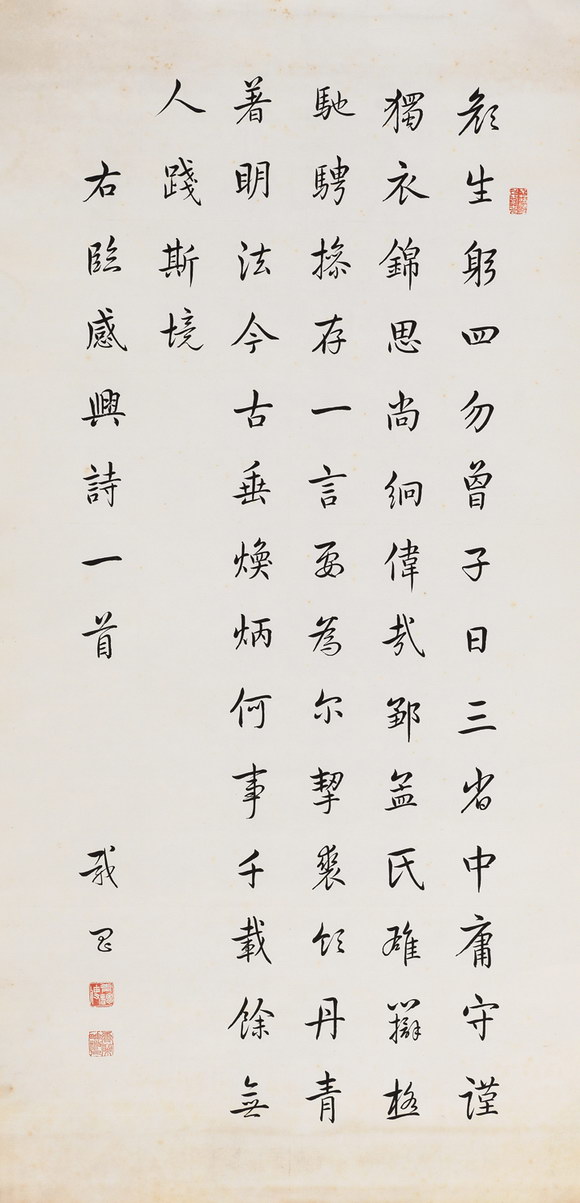 顏生躬四勿曾子日三省中庸守謹
獨衣錦思尚絅偉哉鄒孟氏雄辯極
馳騁操存一言要為尔挈裘領丹青
著明法今古垂煥炳何事千載餘無
人踐斯境
右臨感興詩一首